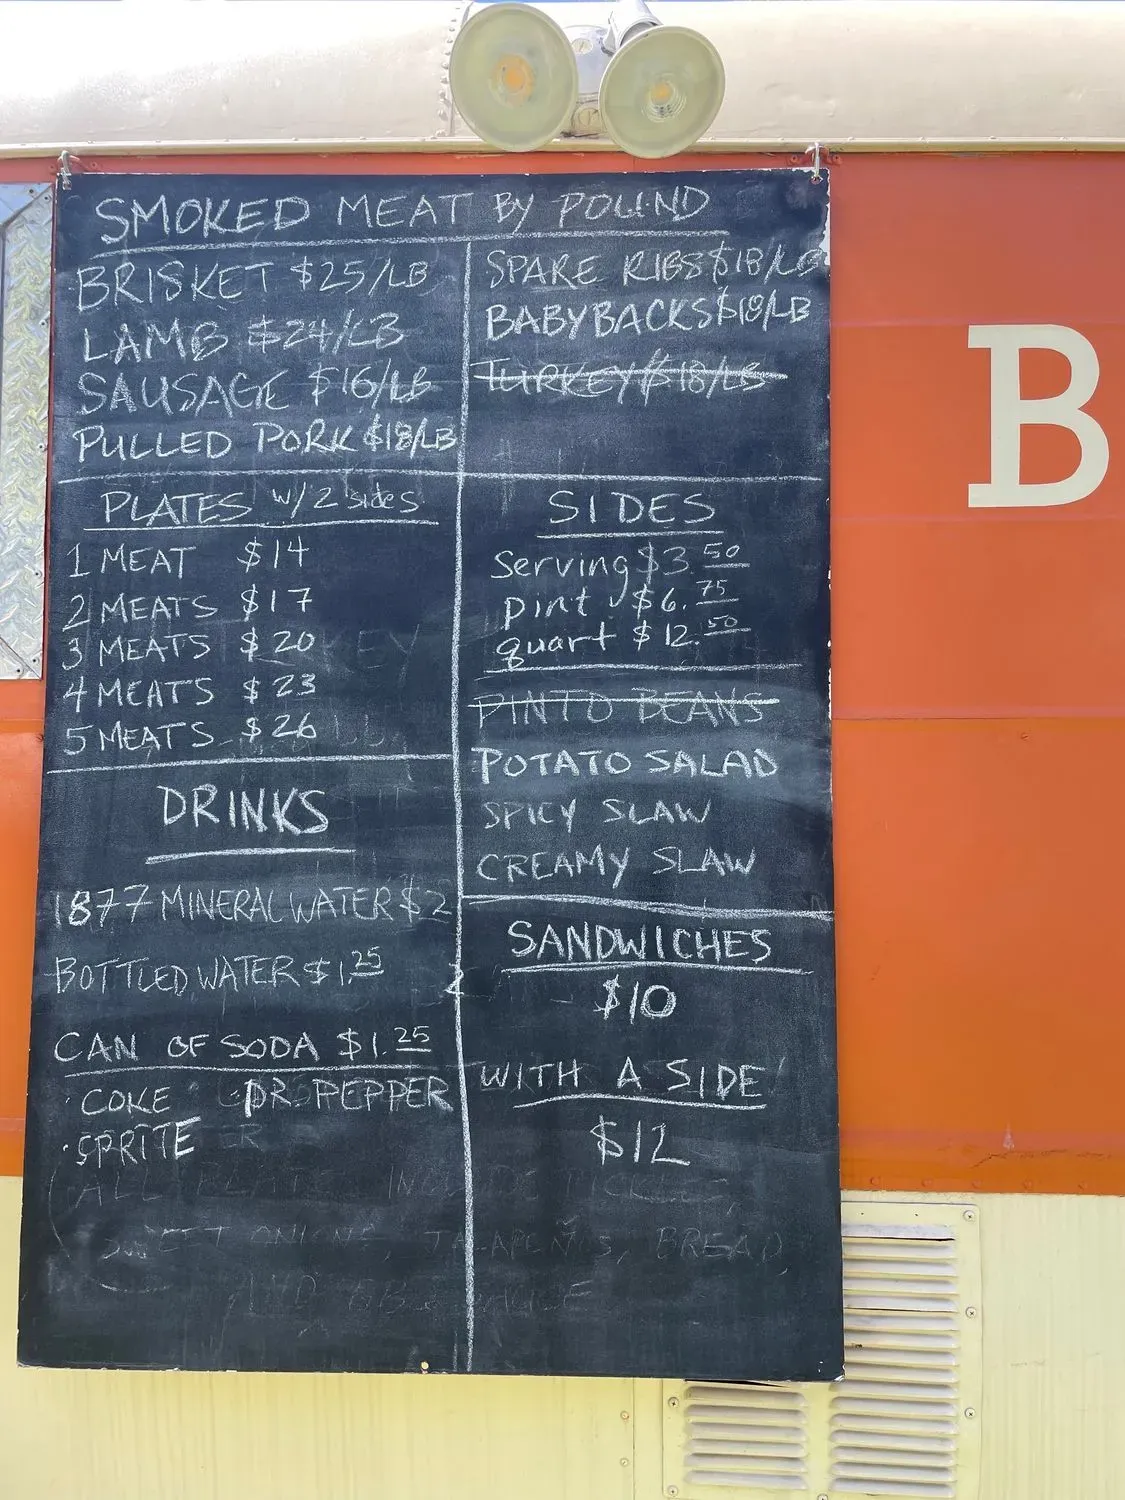 SMOKED MEAT BY POUND
BRISKET $25/LB
LAMB $24/LB
SAUSAGE $16/LB
PULLED PORK $18/LB
SPARE RIBS $18/LB
BABYBACKS $18/LB
TURKEY $18/LB
PLATES w/2 sides
1 MEAT $14
2 MEATS $17
3 MEATS $20
4 MEATS $23
5 MEATS $26
SIDES
Serving $3.50
pint $6.75
quart $12.50
PINTO BEANS
POTATO SALAD
SPICY SLAW
CREAMY SLAW
DRINKS
1877 MINERAL WATER $2
BOTTLED WATER $1.25
CAN OF SODA $1.25
· COKE · DR. PEPPER
· SPRITE
SANDWICHES
$10
WITH A SIDE
$12
ALL PLATES INCLUDE PICKLES,
SWEET ONIONS, JALAPEÑOS, BREAD,
AND BBQ SAUCE
B